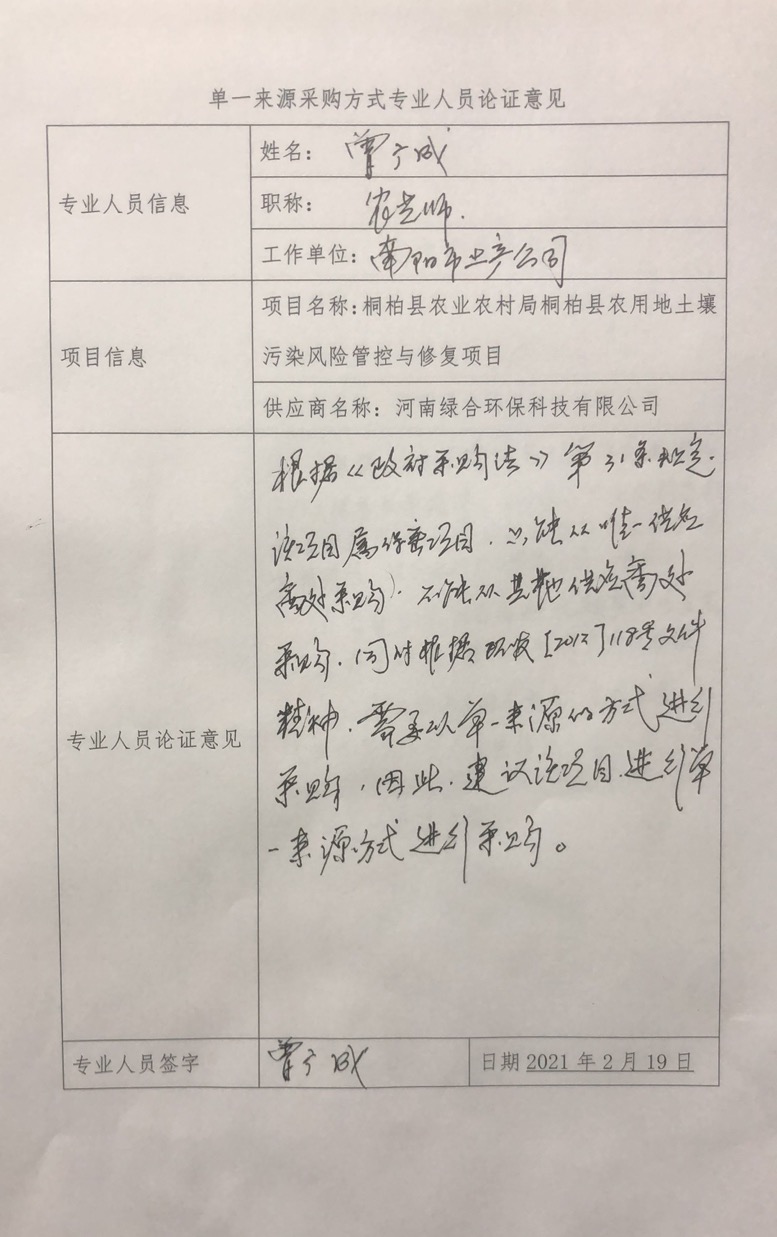 单一来源采购方式专业人员论证意见
专业人员信息
姓名：曾广成
职称：农艺师.
工作单位：南阳市土产公司
项目信息
项目名称：桐柏县农业农村局桐柏县农用地土壤
污染风险管控与修复项目
供应商名称：河南绿合环保科技有限公司
专业人员论证意见
根据《政府采购法》第31条规定.
该项目属保密项目，只能从唯一供应
商处采购），不能从其他供应商处
采购，同时根据环发[2012]118号文件
精神，需要以单一来源的方式进行
采购，因此，建议该项目进行单
一来源方式进行采购。
专业人员签字
曾广成
日期 2021 年 2 月 19 日